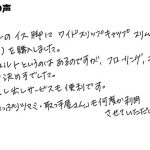 の声
のイス脚に ワイドスリップキャップ スリム
)を購入しました。
ェルトというのは あるのですが、フローリング、
決めてでした。
し出しサービスも便利です。
っぷりツマミ、取っ手屋さん」も何度か利用
させていただい